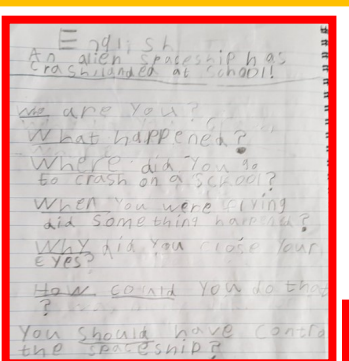 English
An alien spaceship has
crashlanded at School!
are you?
What happened?
Where did You go
to crash on a SCHOOl?
When you were
did Something happened?
Why did You close Your
EYes?
How could You do that
?
You Should have Contro
the spaceship?